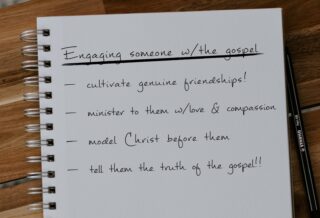 Engaging someone w/the gospel
— cultivate genuine friendships!
— minister to them w/love & compassion
— model Christ before them
— tell them the truth of the gospel!!